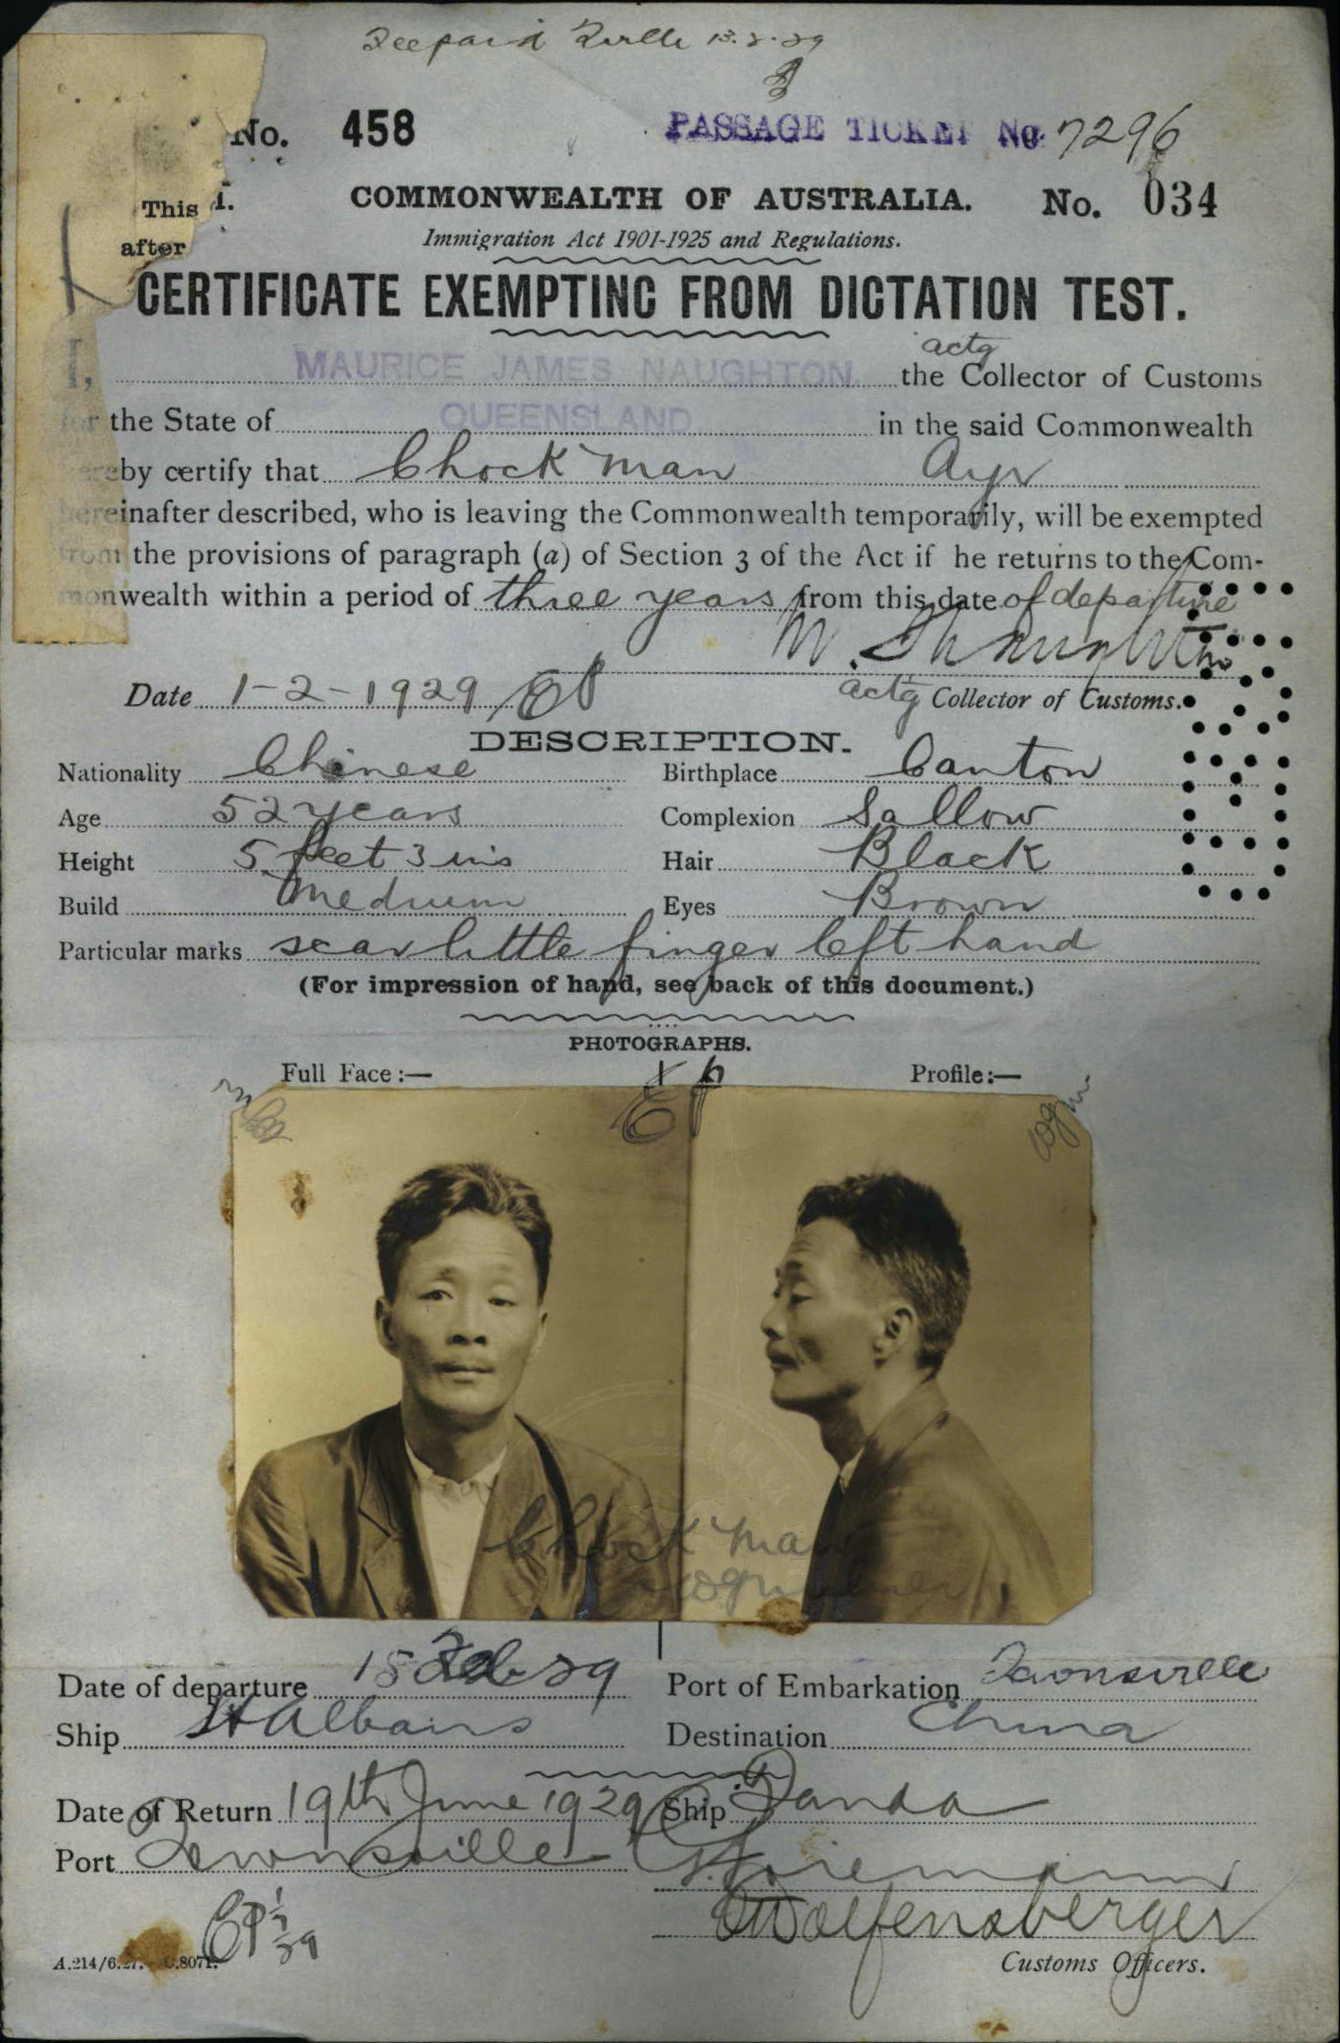 Fee paid 13.2.29
No. 458 PASSAGE TICKET No. 7296
This
after
COMMONWEALTH OF AUSTRALIA. No. 034
Immigration Act 1901-1925 and Regulations.
CERTIFICATE EXEMPTING FROM DICTATION TEST.
actg
I, MAURICE JAMES NAUGHTON the Collector of Customs
for the State of QUEENSLAND in the said Commonwealth
hereby certify that Chock Man Ayr
hereinafter described, who is leaving the Commonwealth temporarily, will be exempted
from the provisions of paragraph (a) of Section 3 of the Act if he returns to the Com-
monwealth within a period of three years from this date of departure
Date 1-2-1929 actg Collector of Customs.
DESCRIPTION.
Nationality Chinese Birthplace Canton
Age 52 years Complexion Sallow
Height 5 feet 3 ins Hair Black
Build Medium Eyes Brown
Particular marks scar little finger left hand
(For impression of hand, see back of this document.)
PHOTOGRAPHS.
Full Face:— Profile:—
Chock Man
Date of departure 15 Feb 29 Port of Embarkation Townsville
Ship St Albans Destination China
Date of Return 19th June 1929 Ship Tanda
Port Townsville
Wolfensberger
Customs Officers.
A.214/6.27. C.8071.